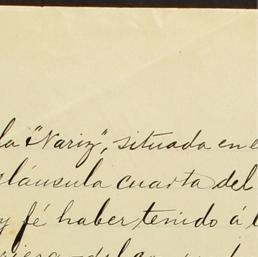 la "Nariz", situada en e
cláusula cuarta del
y fé haber tenido á l